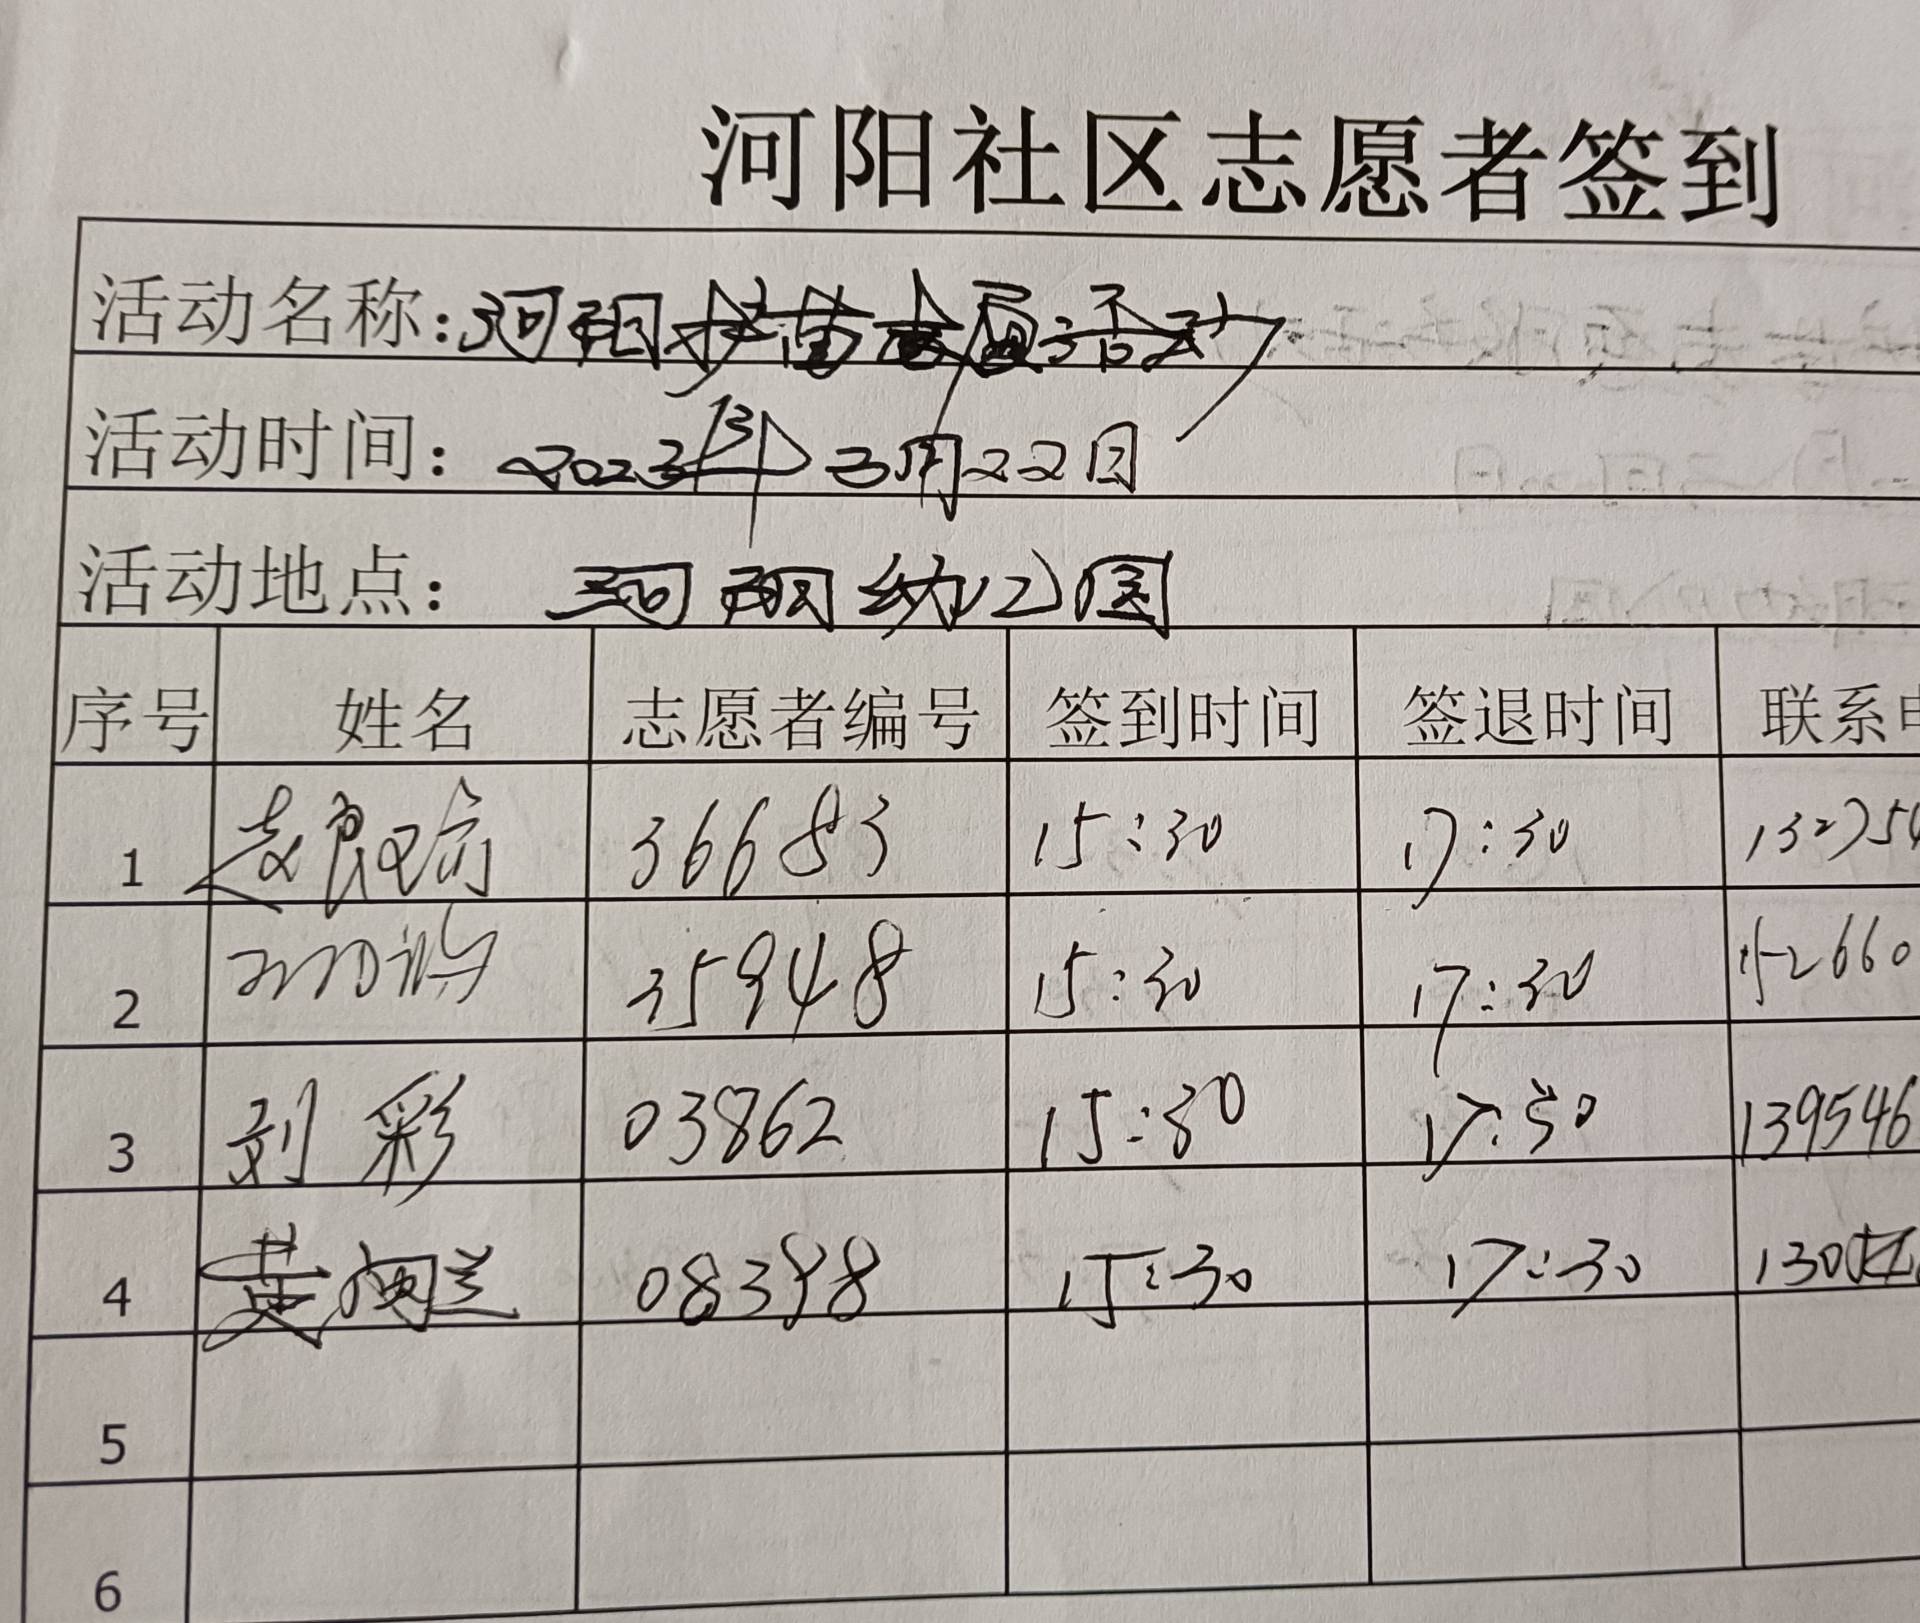 河阳社区志愿者签到
活动名称:河阳护苗志愿活动
活动时间: 2023年3月22日
活动地点: 河阳幼儿园
序号 姓名 志愿者编号 签到时间 签退时间 联系电
1 赵良瑜 36683 15:30 17:30 132754
2 35948 15:30 17:30 152660
3 刘彩 03862 15:30 17:30 139546
4 黄烟兰 08398 15:30 17:30 130
5
6